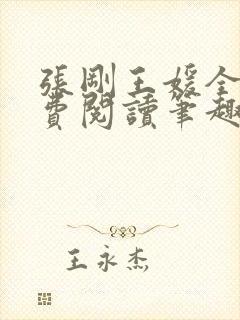 張剛王媛全
費閱讀筆趣
王永杰